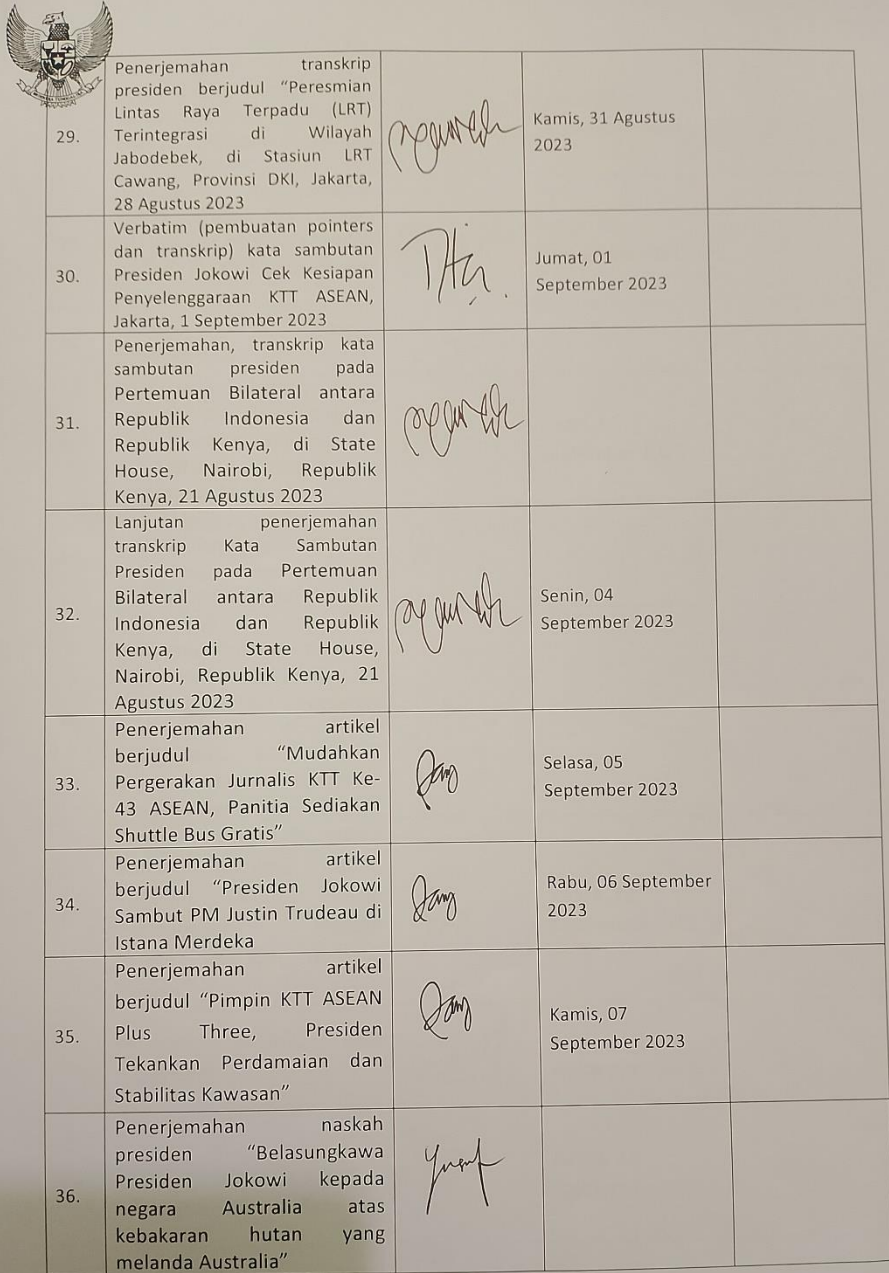 29.
Penerjemahan transkrip
presiden berjudul “Peresmian
Lintas Raya Terpadu (LRT)
Terintegrasi di Wilayah
Jabodebek, di Stasiun LRT
Cawang, Provinsi DKI, Jakarta,
28 Agustus 2023
Kamis, 31 Agustus
2023
30.
Verbatim (pembuatan pointers
dan transkrip) kata sambutan
Presiden Jokowi Cek Kesiapan
Penyelenggaraan KTT ASEAN,
Jakarta, 1 September 2023
Jumat, 01
September 2023
31.
Penerjemahan, transkrip kata
sambutan presiden pada
Pertemuan Bilateral antara
Republik Indonesia dan
Republik Kenya, di State
House, Nairobi, Republik
Kenya, 21 Agustus 2023
32.
Lanjutan penerjemahan
transkrip Kata Sambutan
Presiden pada Pertemuan
Bilateral antara Republik
Indonesia dan Republik
Kenya, di State House,
Nairobi, Republik Kenya, 21
Agustus 2023
Senin, 04
September 2023
33.
Penerjemahan artikel
berjudul “Mudahkan
Pergerakan Jurnalis KTT Ke-
43 ASEAN, Panitia Sediakan
Shuttle Bus Gratis”
Selasa, 05
September 2023
34.
Penerjemahan artikel
berjudul “Presiden Jokowi
Sambut PM Justin Trudeau di
Istana Merdeka
Rabu, 06 September
2023
35.
Penerjemahan artikel
berjudul “Pimpin KTT ASEAN
Plus Three, Presiden
Tekankan Perdamaian dan
Stabilitas Kawasan”
Kamis, 07
September 2023
36.
Penerjemahan naskah
presiden “Belasungkawa
Presiden Jokowi kepada
negara Australia atas
kebakaran hutan yang
melanda Australia”
Yusuf